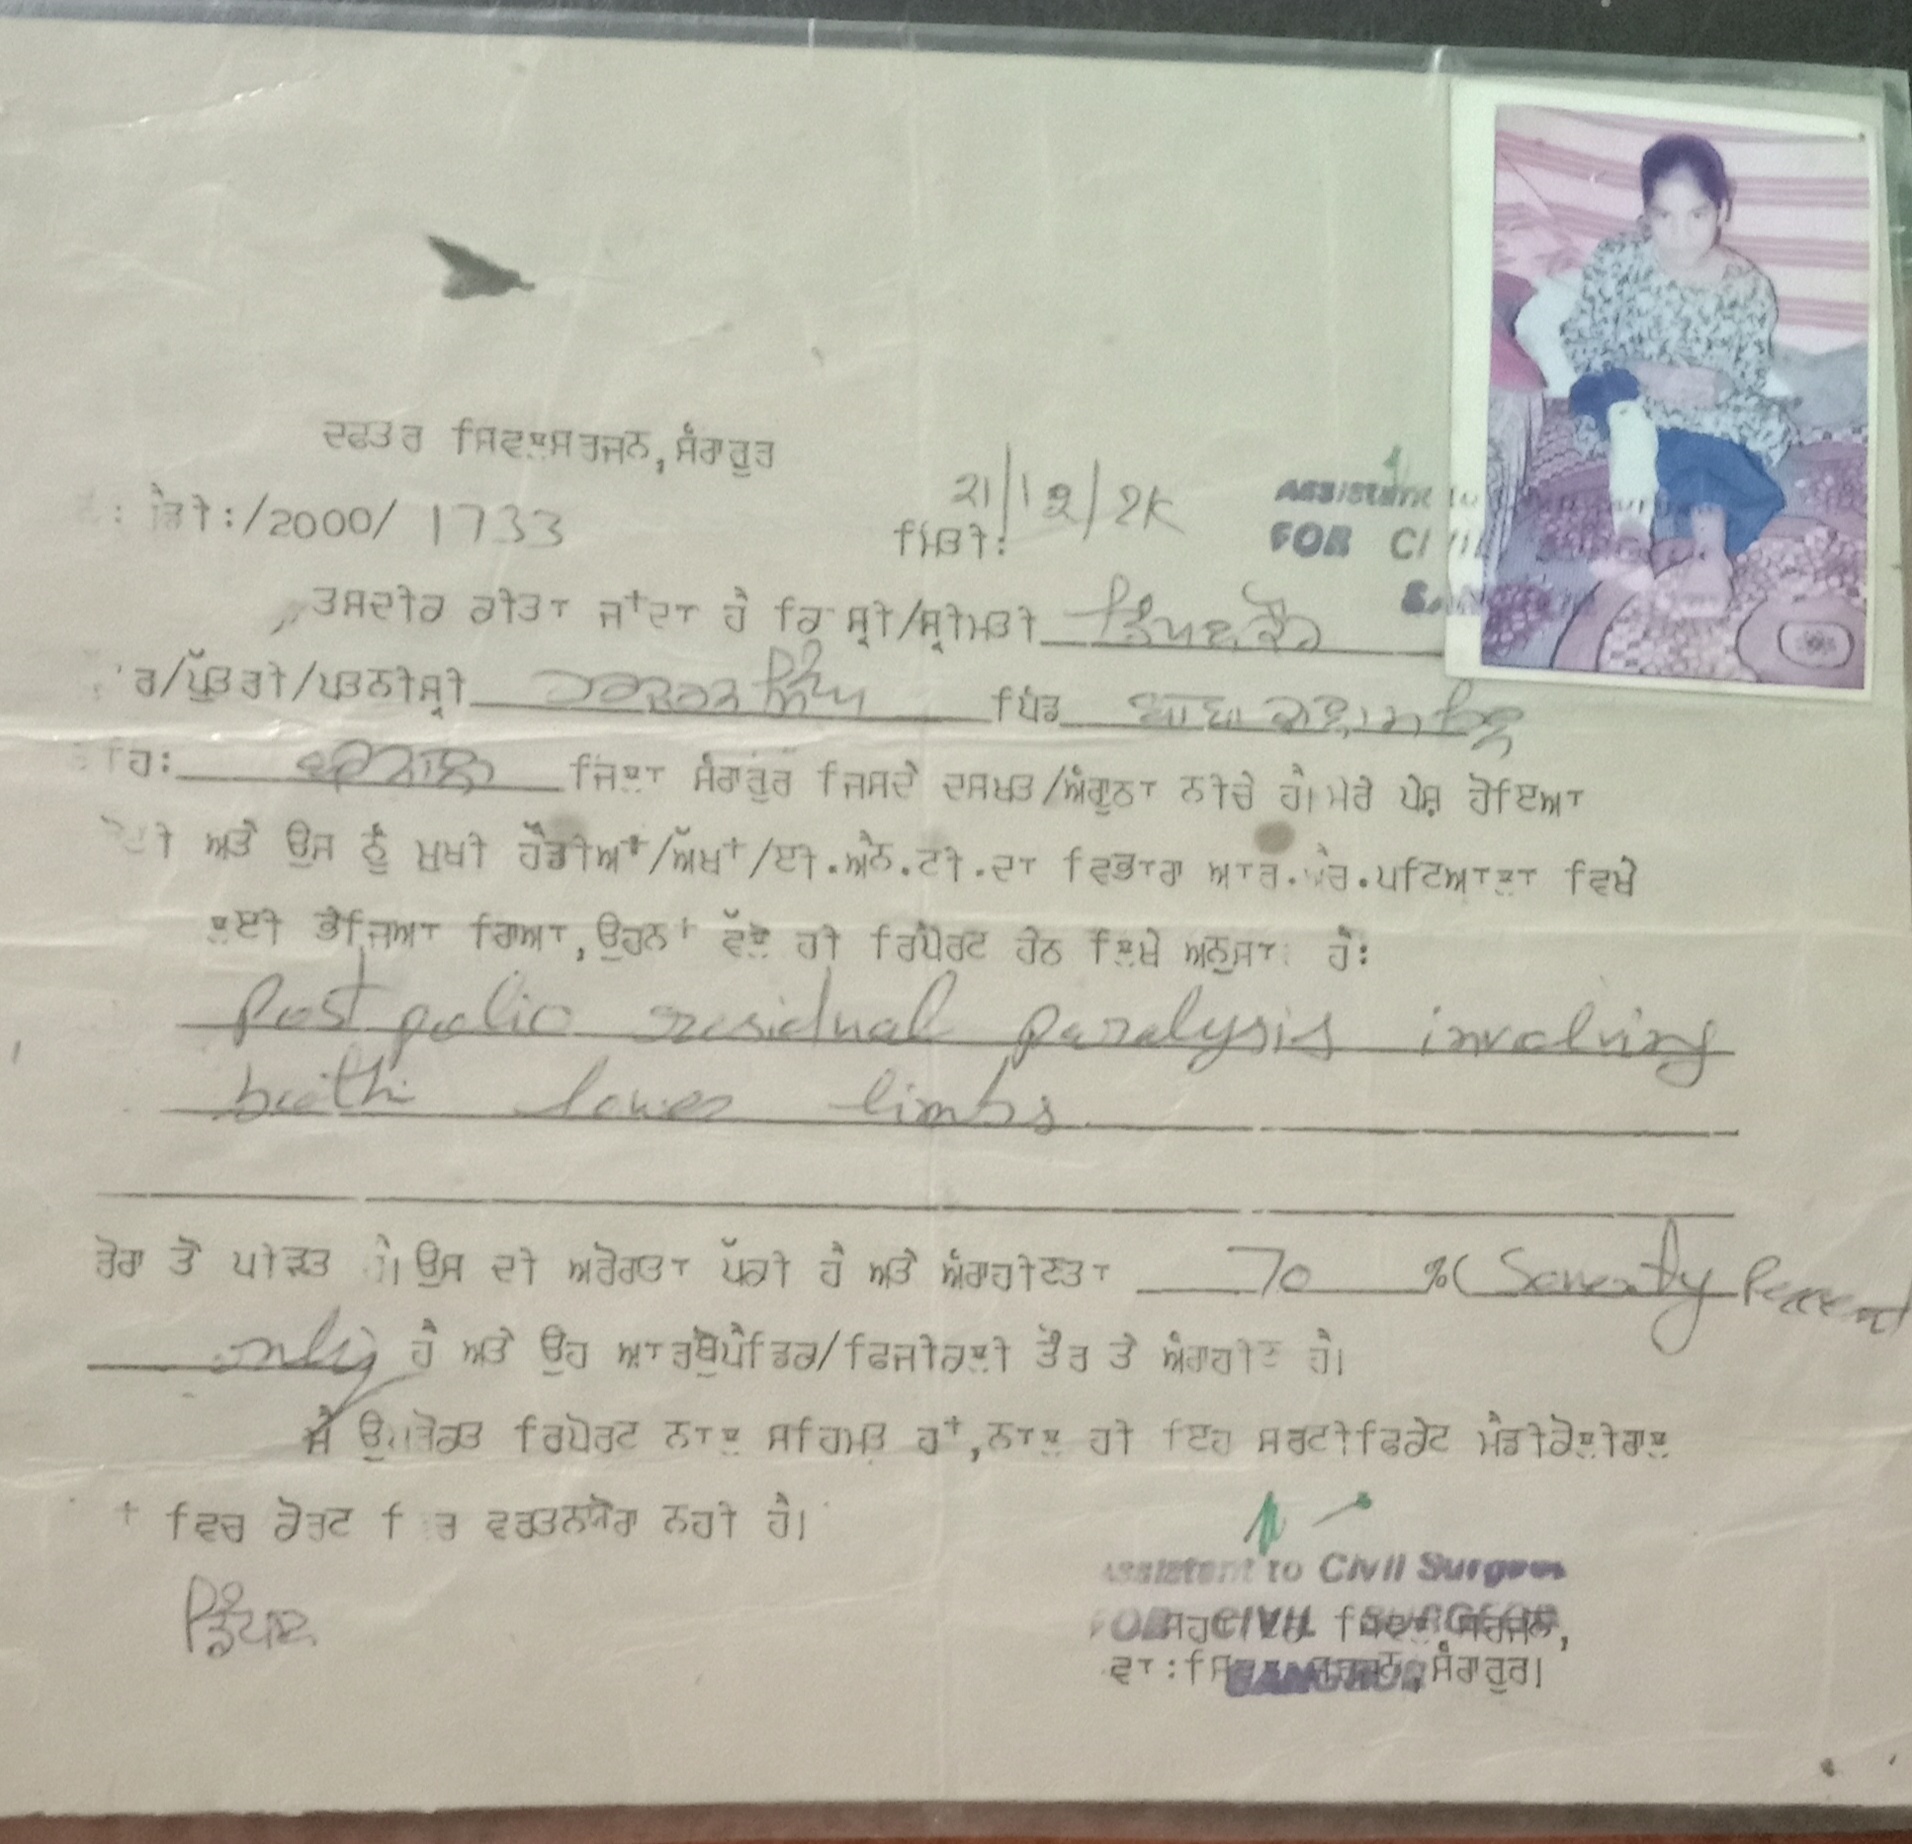 ਦਫਤਰ ਸਿਵਲਸਰਜਨ,ਸੰਗਰੂਰ
21/12/2K
ਡੀ:/2000/ 1733 ਮਿਤੀ:
Assistant to
FOR CIVIL
ਤਸਦੀਕ ਕੀਤਾ ਜਾਂਦਾ ਹੈ ਕਿ ਸ਼੍ਰੀ/ਸ਼੍ਰੀਮਤੀ ਡਿੰਪਲ ਕੌਰ
ਰ/ਪੁੱਤਰੀ/ਪਤਨੀਸ਼੍ਰੀ ਹਰਚਰਨ ਸਿੰਘ ਪਿੰਡ
ਹਿ: ਬਰਨਾਲਾ ਜਿਲਾ ਸੰਗਰੂਰ ਜਿਸਦੇ ਦਸਖਤ/ਅੰਗੂਠਾ ਨੀਚੇ ਹੈ।ਮੇਰੇ ਪੇਸ਼ ਹੋਇਆ
ਅਤੇ ਉਸ ਨੂੰ ਮੁਖੀ ਹੱਡੀਆਂ/ਅੱਖਾਂ/ਈ.ਐਨ.ਟੀ.ਦਾ ਵਿਭਾਗ ਆਰ. ਪਟਿਆਲਾ ਵਿਖੇ
ਲਈ ਭੇਜਿਆ ਗਿਆ,ਉਹਨਾਂ ਵੱਲੋ ਕੀ ਰਿਪੋਰਟ ਹੇਠ ਲਿਖੇ ਅਨੁਸਾਰ ਹੈ:
Post polio residual paralysis involving
both lower limbs
ਰੋਗ ਤੋਂ ਪੀੜਤ ਹੈ।ਉਸ ਦੀ ਅਰੋਗਤਾ ਪੱਕੀ ਹੈ ਅਤੇ ਅੰਗਹੀਣਤਾ 70 %(Seventy Percent
only ਹੈ ਅਤੇ ਉਹ ਆਰਥੋਪੈਡਿਕ/ਫਿਜੀਕਲੀ ਤੌਰ ਤੇ ਅੰਗਹੀਣ ਹੈ।
ਮੈਂ ਉਪਰੋਕਤ ਰਿਪੋਰਟ ਨਾਲ ਸਹਿਮਤ ਹਾਂ,ਨਾਲ ਹੀ ਇਹ ਸਰਟੀਫਿਕੇਟ ਮੈਡੀਕੋਲੀਗਲ
ਵਿਚ ਕੋਰਟ ਵਰਤਨਯੋਗ ਨਹੀ ਹੈ।
ਡਿੰਪਲ
Assistant to Civil Surgeon
FOR CIVIL SURGEON
ਸਰਜਨ,
SANGRUR
ਵਾ:ਸਿਵਲ ਸਰਜਨ,ਸੰਗਰੂਰ।